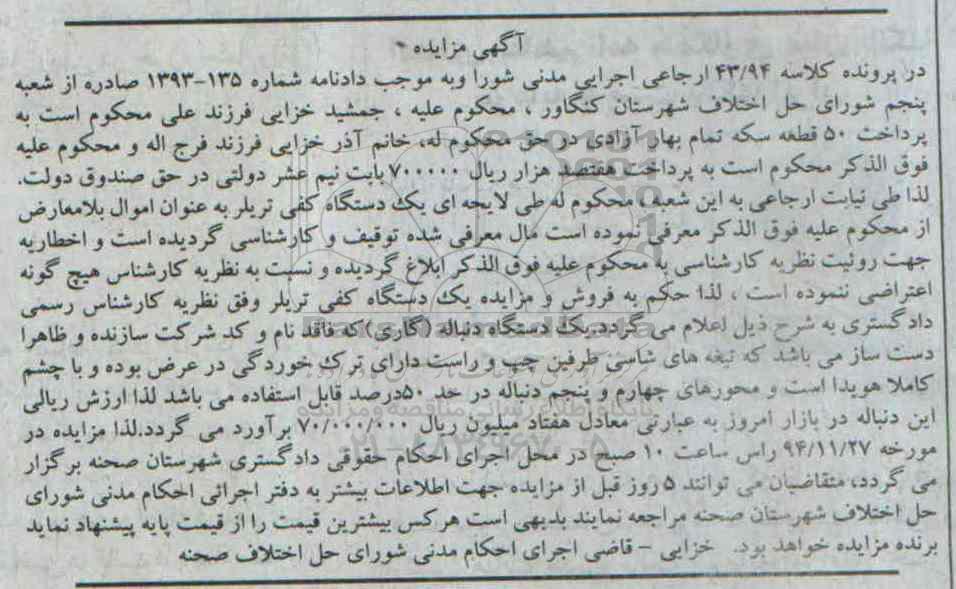 آگهی مزایده
در پرونده کلاسه ۴۳/۹۴ ارجاعی اجرایی مدنی شورا وبه موجب دادنامه شماره ۱۳۵-۱۳۹۳ صادره از شعبه
پنجم شورای حل اختلاف شهرستان کنگاور ، محکوم علیه ، جمشید خزایی فرزند علی محکوم است به
پرداخت ۵۰ قطعه سکه تمام بهار آزادی در حق محکوم له، خانم آذر خزایی فرزند فرج اله و محکوم علیه
فوق الذکر محکوم است به پرداخت هفتصد هزار ریال ۷۰۰۰۰۰ بابت نیم عشر دولتی در حق صندوق دولت.
لذا طی نیابت ارجاعی به این شعبه ، محکوم له طی لایحه ای یک دستگاه کفی تریلر به عنوان اموال بلامعارض
از محکوم علیه فوق الذکر معرفی نموده است مال معرفی شده توقیف و کارشناسی گردیده است و اخطاریه
جهت روئیت نظریه کارشناسی به محکوم علیه فوق الذکر ابلاغ گردیده و نسبت به نظریه کارشناس هیچ گونه
اعتراضی ننموده است ، لذا حکم به فروش و مزایده یک دستگاه کفی تریلر وفق نظریه کارشناس رسمی
دادگستری به شرح ذیل اعلام می گردد.یک دستگاه دنباله (گاری) که فاقد نام و کد شرکت سازنده و ظاهرا
دست ساز می باشد که تیغه های شاسی طرفین چپ و راست دارای ترک خوردگی در عرض بوده و با چشم
کاملا هویدا است و محورهای چهارم و پنجم دنباله در حد ۵۰درصد قابل استفاده می باشد لذا ارزش ریالی
این دنباله در بازار امروز به عبارتی معادل هفتاد میلیون ریال ۷۰/۰۰۰/۰۰۰ برآورد می گردد.لذا مزایده در
مورخه ۹۴/۱۱/۲۷ راس ساعت ۱۰ صبح در محل اجرای احکام حقوقی دادگستری شهرستان صحنه برگزار
می گردد، متقاضیان می توانند ۵ روز قبل از مزایده جهت اطلاعات بیشتر به دفتر اجرائی احکام مدنی شورای
حل اختلاف شهرستان صحنه مراجعه نمایند بدیهی است هرکس بیشترین قیمت را از قیمت پایه پیشنهاد نماید
برنده مزایده خواهد بود. خزایی – قاضی اجرای احکام مدنی شورای حل اختلاف صحنه